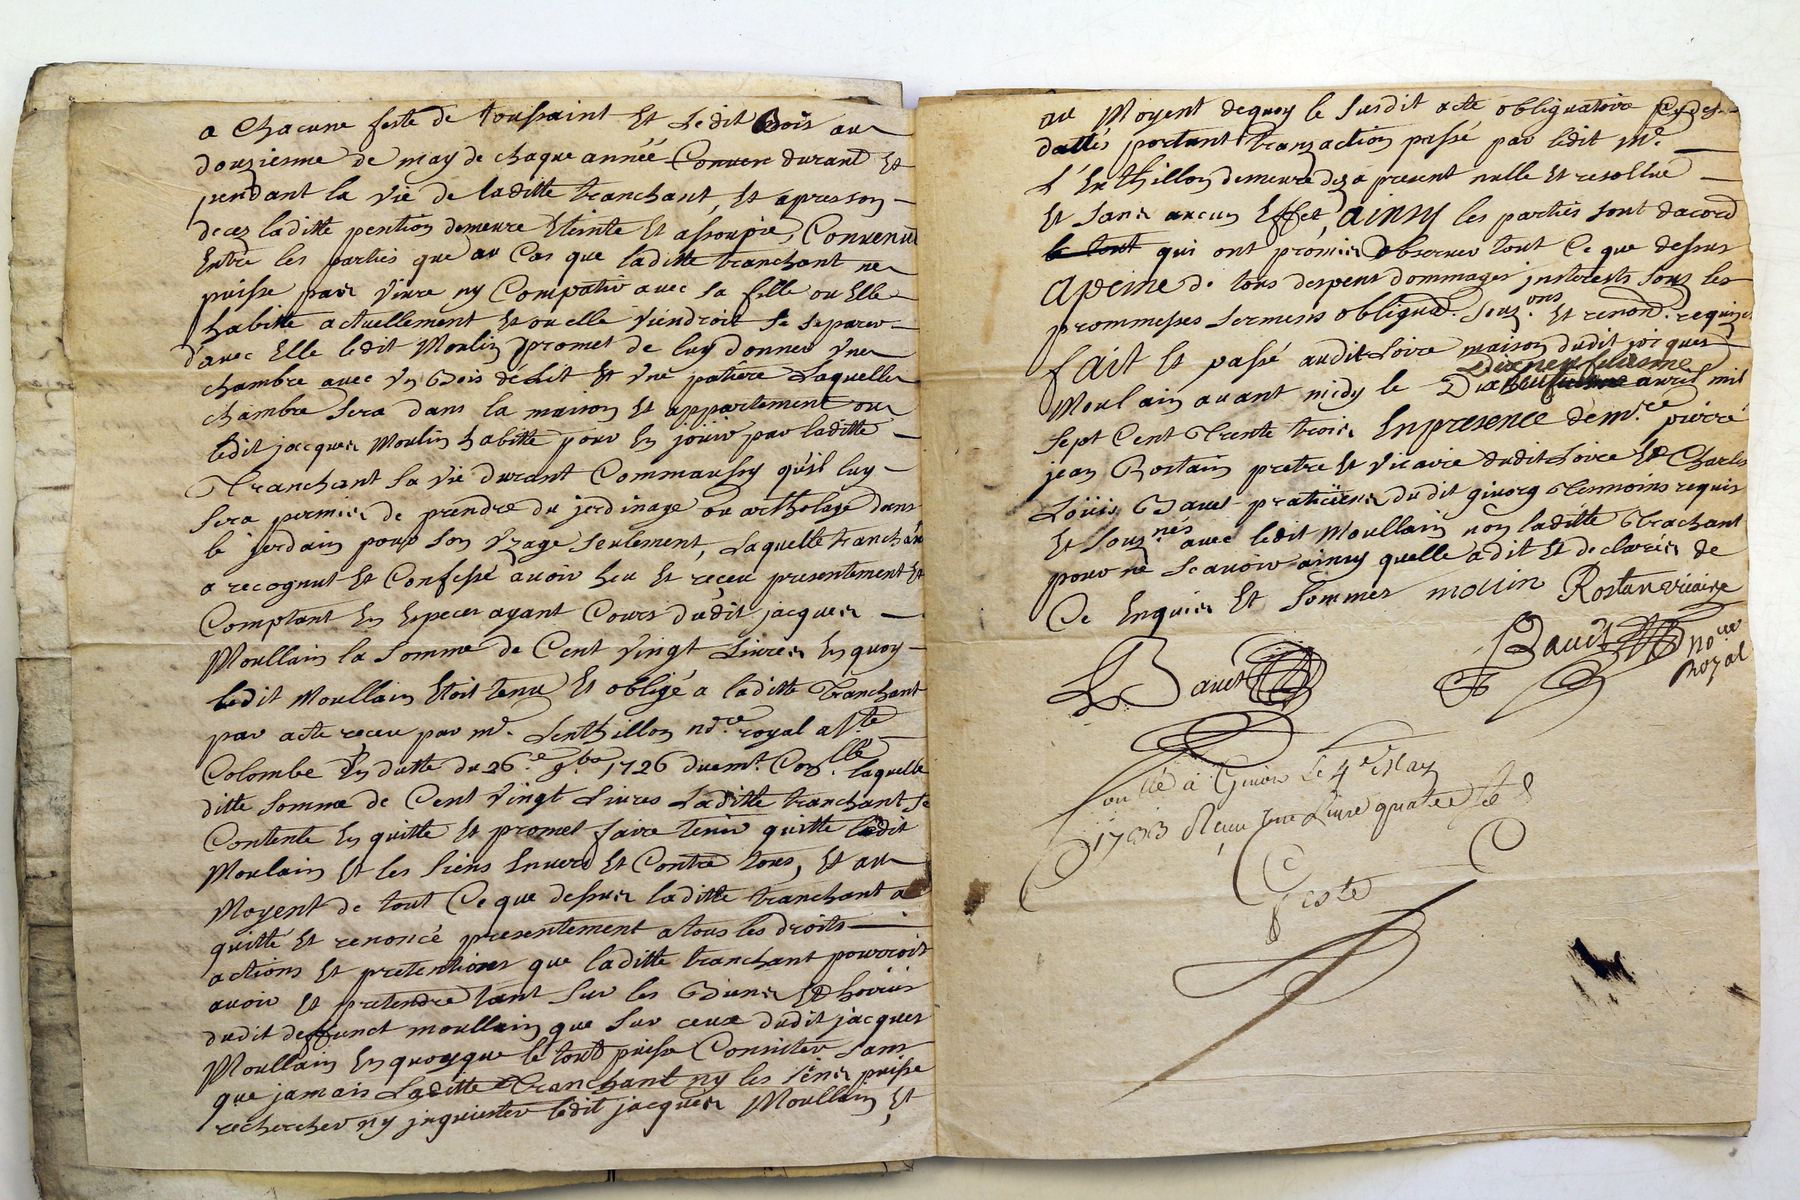 a Chacune feste de toussaint Et Ledit Bois au
douzienne de may de chaque année Conven durant Et
pendant la vie de laditte tranchant, Et apres son
decez laditte pention demeure Eteinte Et assoupie, Convenu
Entre les parties que au Cas que laditte tranchant ne
puisse pas vivre ny Compatir avec sa fille ou Elle
habitte actuellement Et ou elle viendroit Se Separer
d'avec Elle ledit Moulin promet de luy donner Une
chambre avec Un Bois de Lit Et Une patiere Laquelle
chambre Sera dans la maison Et appartement ou
ledit jacques Moulin habitte pour En jouir par laditte
Tranchant Sa vie durant Comm'aussy qu'il luy
Sera permis de prendre du jerdinage ou ortholage dans
le jerdain pour Son Uzage Seulement, Laquelle tranchant
a recognut Et Confessé avoir heu Et reçeu presentement Et
Comptant En Especes ayant Cours dudit jacques
Moullain la Somme de Cent vingt Livres En quoy
ledit Moullain Etoit tenu Et obligé a laditte Tranchant
par acte receu par me. Lenthillon nore. royal a Ste
Colombe En datte du 26.e 9.bre 1726 duemt. Con.llé laquelle
ditte Somme de Cent vingt Livres Laditte tranchant Se
Contente En quitte Et promet faire tenir quitte ledit
Moulain Et les Siens Envers Et Contre tous, Et au
Moyent de tout Ce que dessus laditte tranchant a
quitté Et renoncé presentement a tous les droits
actions Et pretentions que laditte tranchant pourroit
avoir Et pretendre tant Sur les Biens Et hoiries
dudit deffunct moullain que Sur ceux dudit jacques
Moullain En quoy que le tout puisse Consister Sans
que jamais Laditte Tranchant ny les Siens puisse
rechercher ny jnquieter ledit jacques Moullain, Et
au Moyent dequoy le Susdit acte obligatoire Cy des
dattés portant tranzaction passé par ledit Me.
L'Enthillon demeure dez a present nulle Et resollue
Et Sans aucun Effet, ainsy les parties Sont dacord
le tout qui ont promis Observer tout Ce que dessus
Apeine de tous despens dommages jnterests Sous les
prommesses Sermens obligaōns. Souz.ons Et renon.ons requizes
fait Et passé audit Loire maison dudit jacques
dixneufiesme
Moulain avant midy le Dix neufiesme avril mil
Sept Cent Trente trois En presence de m.re pierre
jean Rostain pretre Et Vicaire dudit Loire Et Charles
Loüis Bauet praticien du dit givors Tesmoins requis
Et Souz.nés avec ledit Moullain non laditte Trachant
pour ne Scavoir ainsy quelle a dit Et declarés de
Ce Enquis Et Sommés molin Rostan vicaire
L Bauet Bauet nore
royal
Conllé à Givors le 4e May
1733 Reçu Une Livre quatre s
Geste